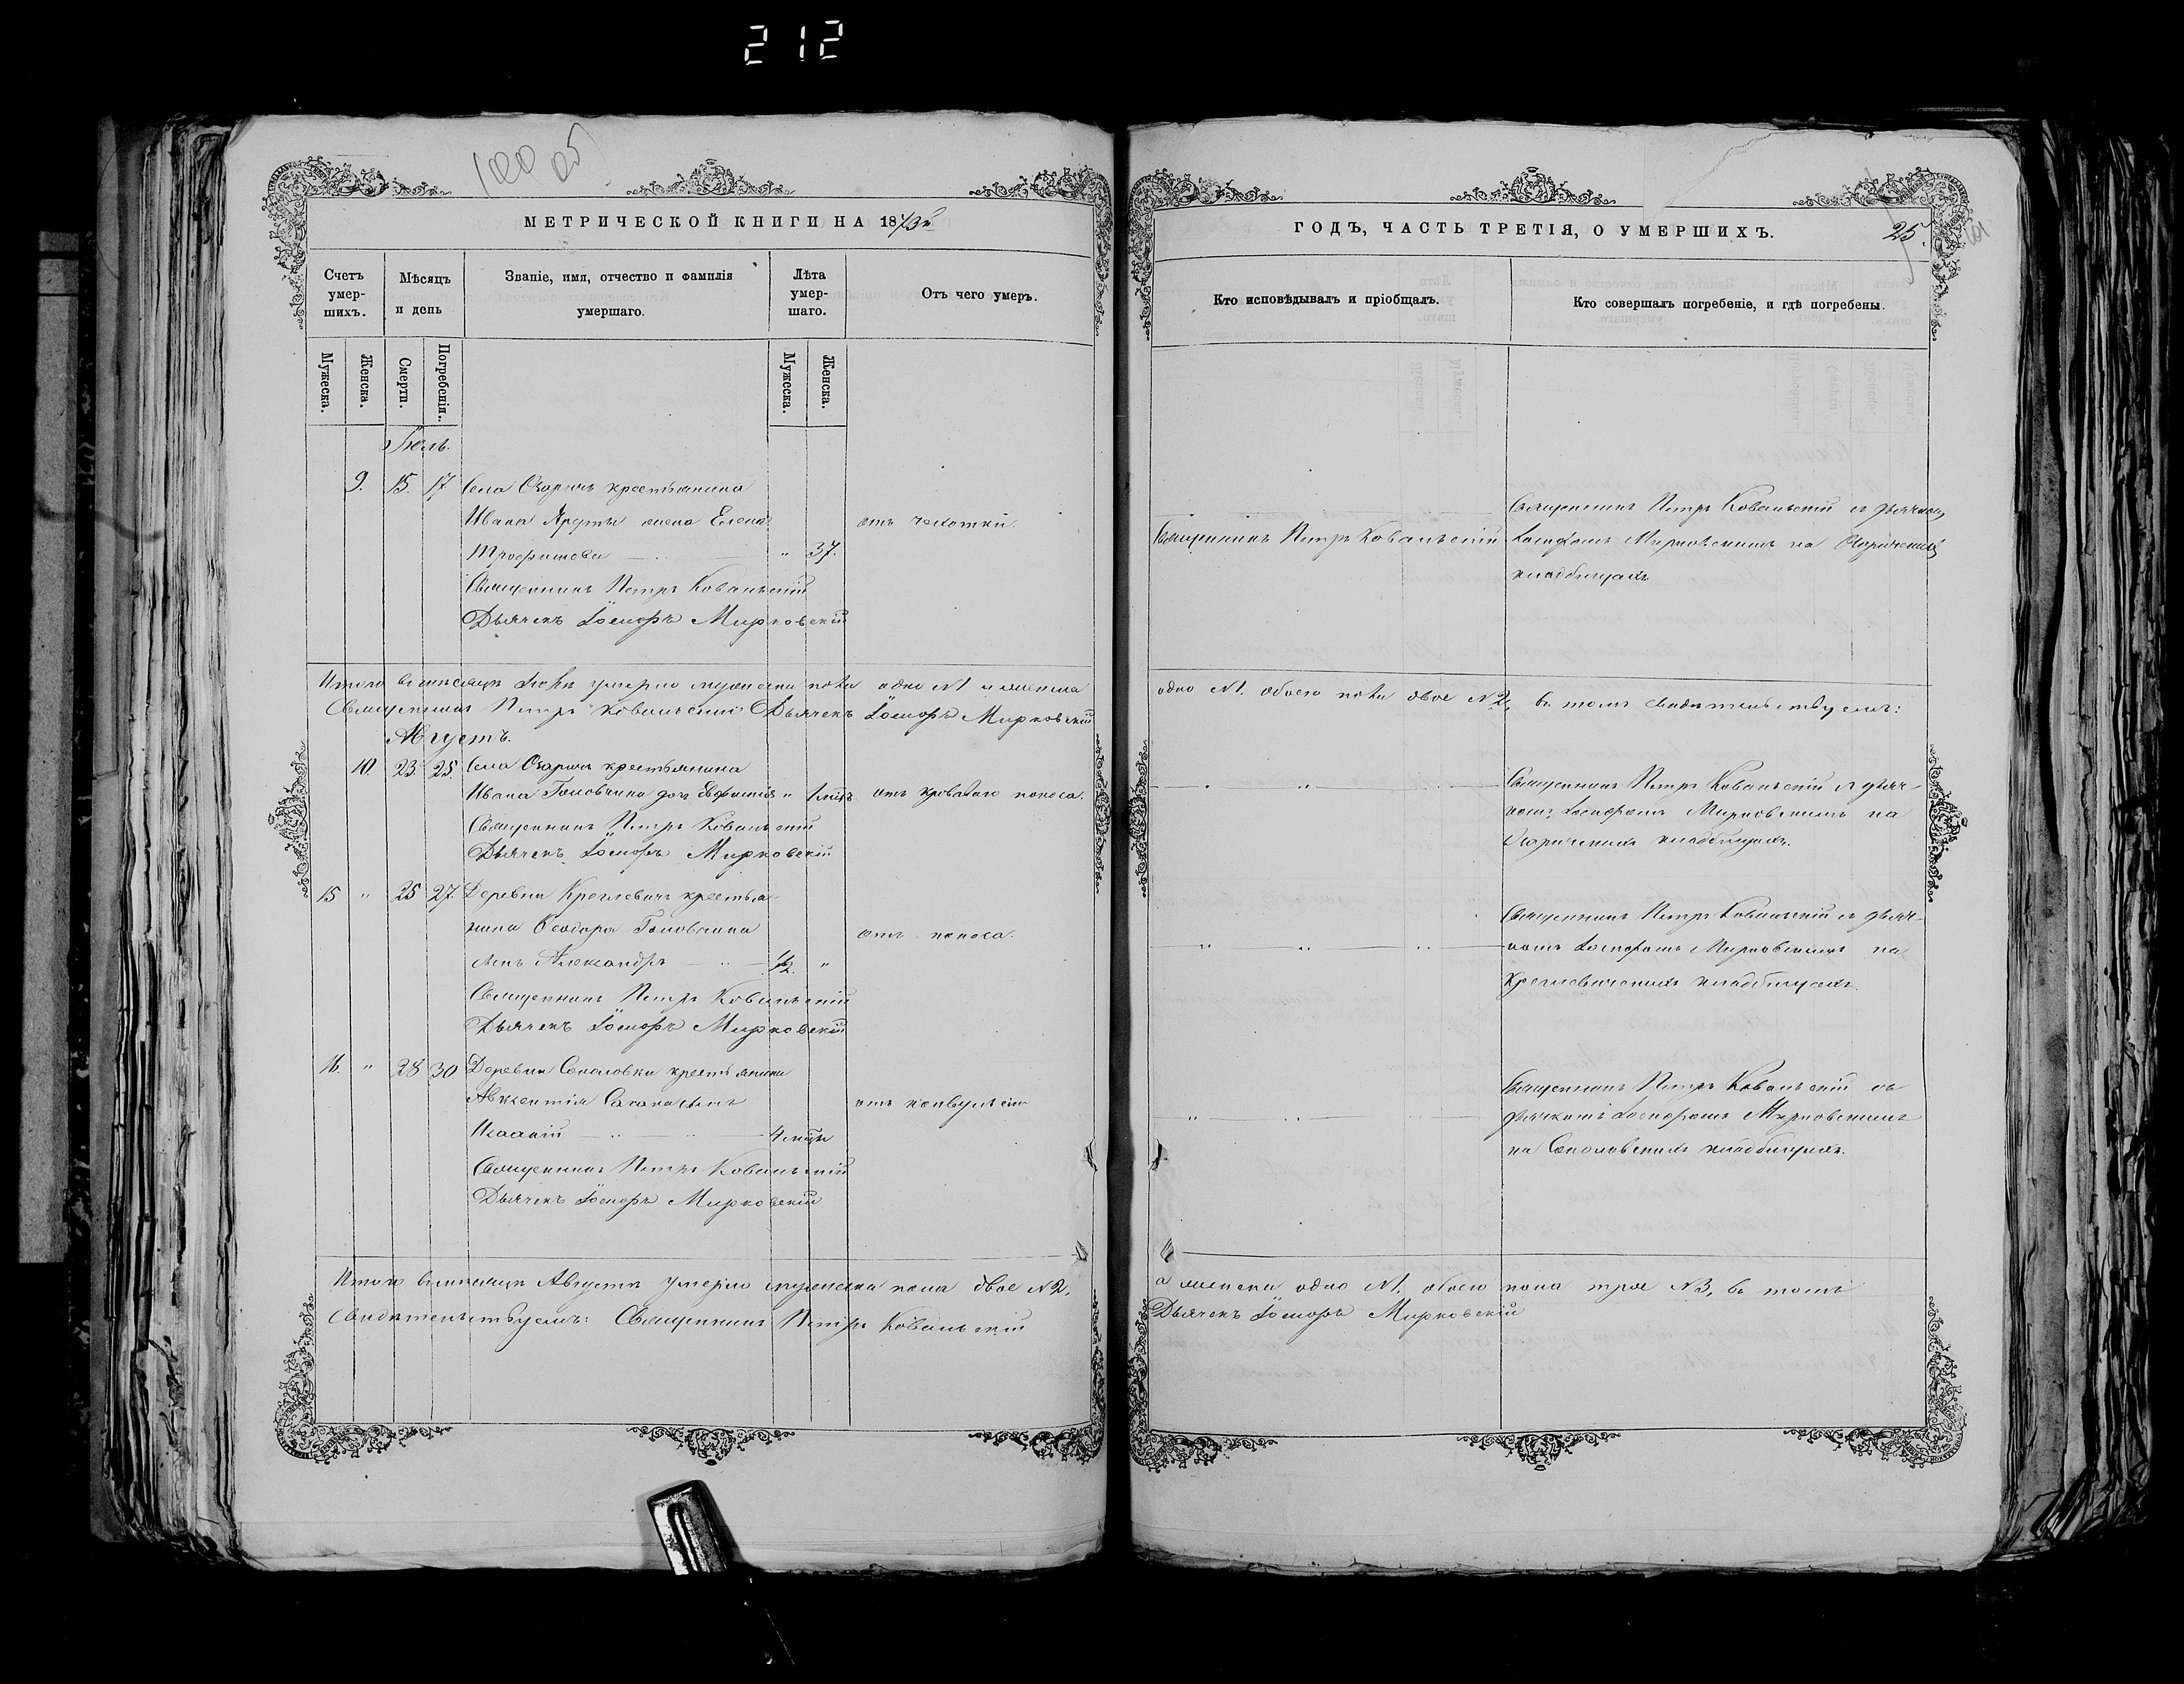 212
100 об
МЕТРИЧЕСКОЙ КНИГИ НА 1873й
Счетъ умер-шихъ.
Мѣсяцъ и день
Званіе, имя, отчество и фамилія умершаго.
Лѣта умер-шаго.
Отъ чего умеръ.
Мужеска.
Женска.
Смерти.
Погребенія.
Мужеска.
Женска.
Іюль.
9. 15. 17 Села Озаричъ крестьянина
Ивана жена Елена отъ чахотки.
Трофимова " 37.
Священникъ Петръ Ковальскій
Дьячекъ Іосифъ Мирковскій
Итого въ мѣсяцѣ Іюлѣ умерло мужеска пола одно №1 и женска
Священникъ Петръ Ковальскій Дьячекъ Іосифъ Мирковскій
Августъ.
10. 23. 25. Села Озаричъ крестьянина
Ивана Головчина дочь Евфимія " 1 мцъ отъ кроваваго поноса.
Священникъ Петръ Ковальскій
Дьячекъ Іосифъ Мирковскій
15 " 25 27. Деревни крестья-
нина Ѳеодора Головчина отъ поноса.
сынъ Александръ 1/2. "
Священникъ Петръ Ковальскій
Дьячекъ Іосифъ Мирковскій
16. " 28 30 Деревни Соколовки крестьянина
Авксентія сынъ отъ конвульсіи
Исаакій 4 мцы
Священникъ Петръ Ковальскій
Дьячекъ Іосифъ Мирковскій
Итого въ мѣсяцѣ Августѣ умерло мужеска пола двое №2,
свидѣтельствуемъ: Священникъ Петръ Ковальскій
ГОДЪ, ЧАСТЬ ТРЕТІЯ, О УМЕРШИХЪ.
25.
101
Кто исповѣдывалъ и пріобщалъ.
Кто совершалъ погребеніе, и гдѣ погребены.
Священникъ Петръ Ковальскій съ дьячкомъ
Священникъ Петръ Ковальскій Іосифомъ Мирковскимъ на Озаричскихъ
кладбищахъ
одно №1. обоего пола двое №2, въ томъ свидѣтельствуемъ:
Священникъ Петръ Ковальскій съ дьяч-
комъ Іосифомъ Мирковскимъ на
Озаричскихъ кладбищахъ.
Священникъ Петръ Ковальскій съ дьяч-
комъ Іосифомъ Мирковскимъ на
кладбищахъ.
Священникъ Петръ Ковальскій съ
дьячкомъ Іосифомъ Мирковскимъ
на Соколовскихъ кладбищахъ.
а женска одно №1, обоего пола трое №3, въ томъ
Дьячекъ Іосифъ Мирковскій